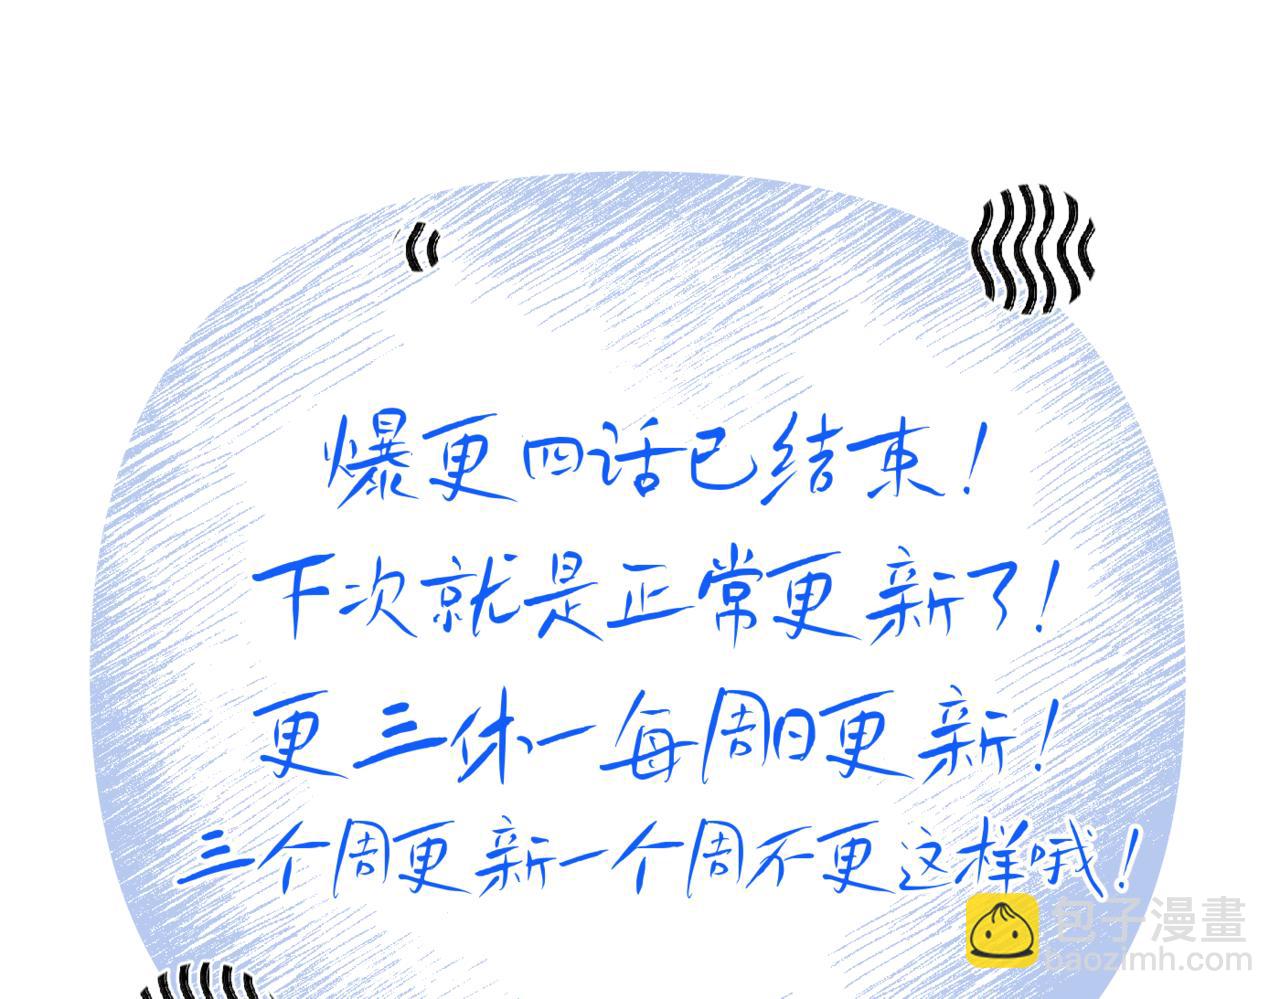 爆更四话已结束！
下次就是正常更新了！
更三休一每周日更新！
三个周更新一个周不更这样哦！
包子漫畫
baozimh.com